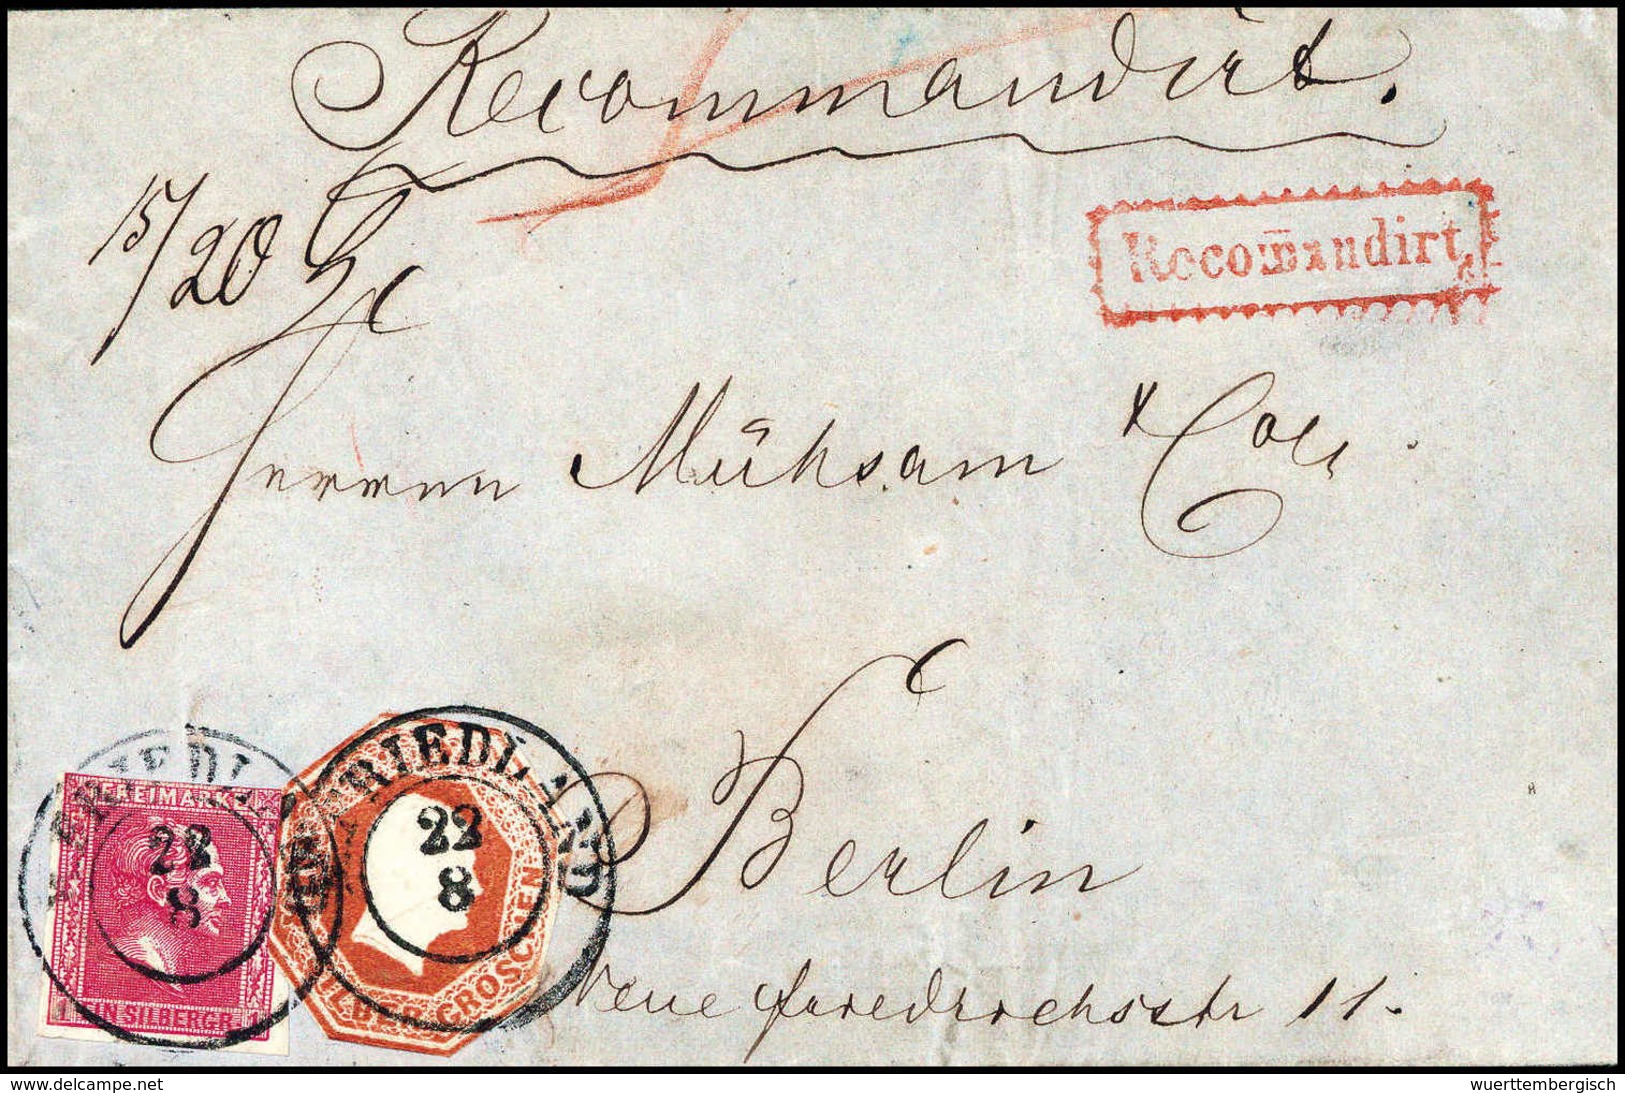 Recommandirt.
15/20
Recom̅andirt.
Herren Mühsam & Co
Berlin
Neue Friedrichsstr 11.
FRIEDLAND
22
8
FREIMARKE
1 EIN SILBERGR. 1
FRIEDLAND
22
8
SILBER GROSCHEN
www.delcampe.net
wuerttembergisch